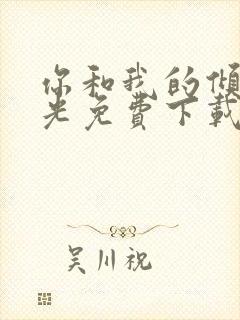 你和我的倾
光免費下載
吴川祝